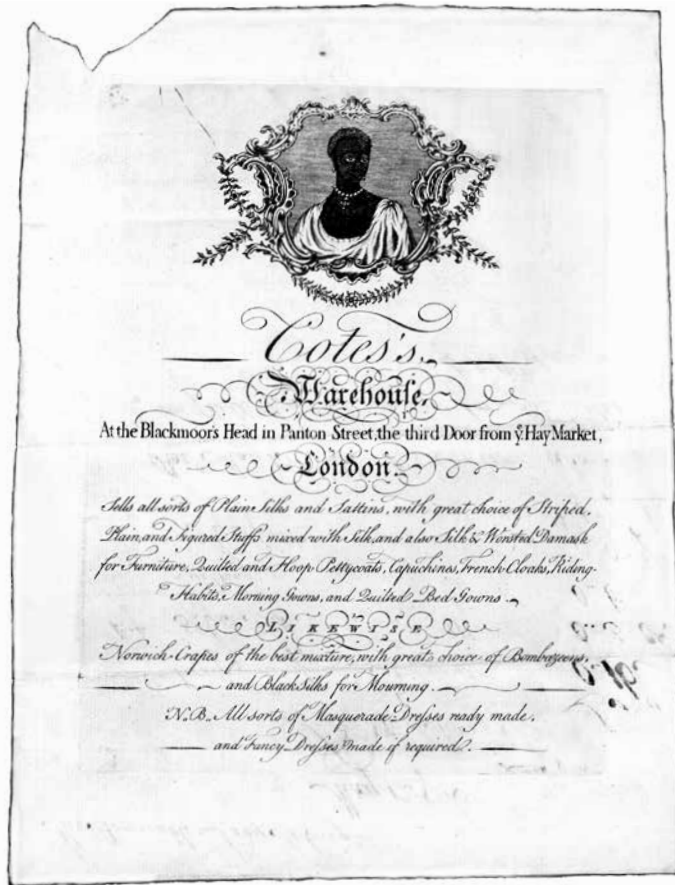 Cotes's
Warehouse,
At the Blackmoor's Head in Panton Street, the third Door from yͤ Hay Market,
London.
Sells all sorts of Plain Silks and Sattins, with great choice of Striped,
Plain, and Figured Stuffs mixed with Silk, and also Silk & Worsted Damask
for Furniture, Quilted and Hoop Pettycoats, Capuchines, French Cloaks, Riding
Habits, Morning Gowns, and Quilted Bed Gowns.
LIKEWISE
Norwich Crapes of the best mixture, with great choice of Bombazeens,
and Black Silks for Mourning.
N.B. All sorts of Masquerade Dreſses ready made,
and Fancy Dreſses made if required.